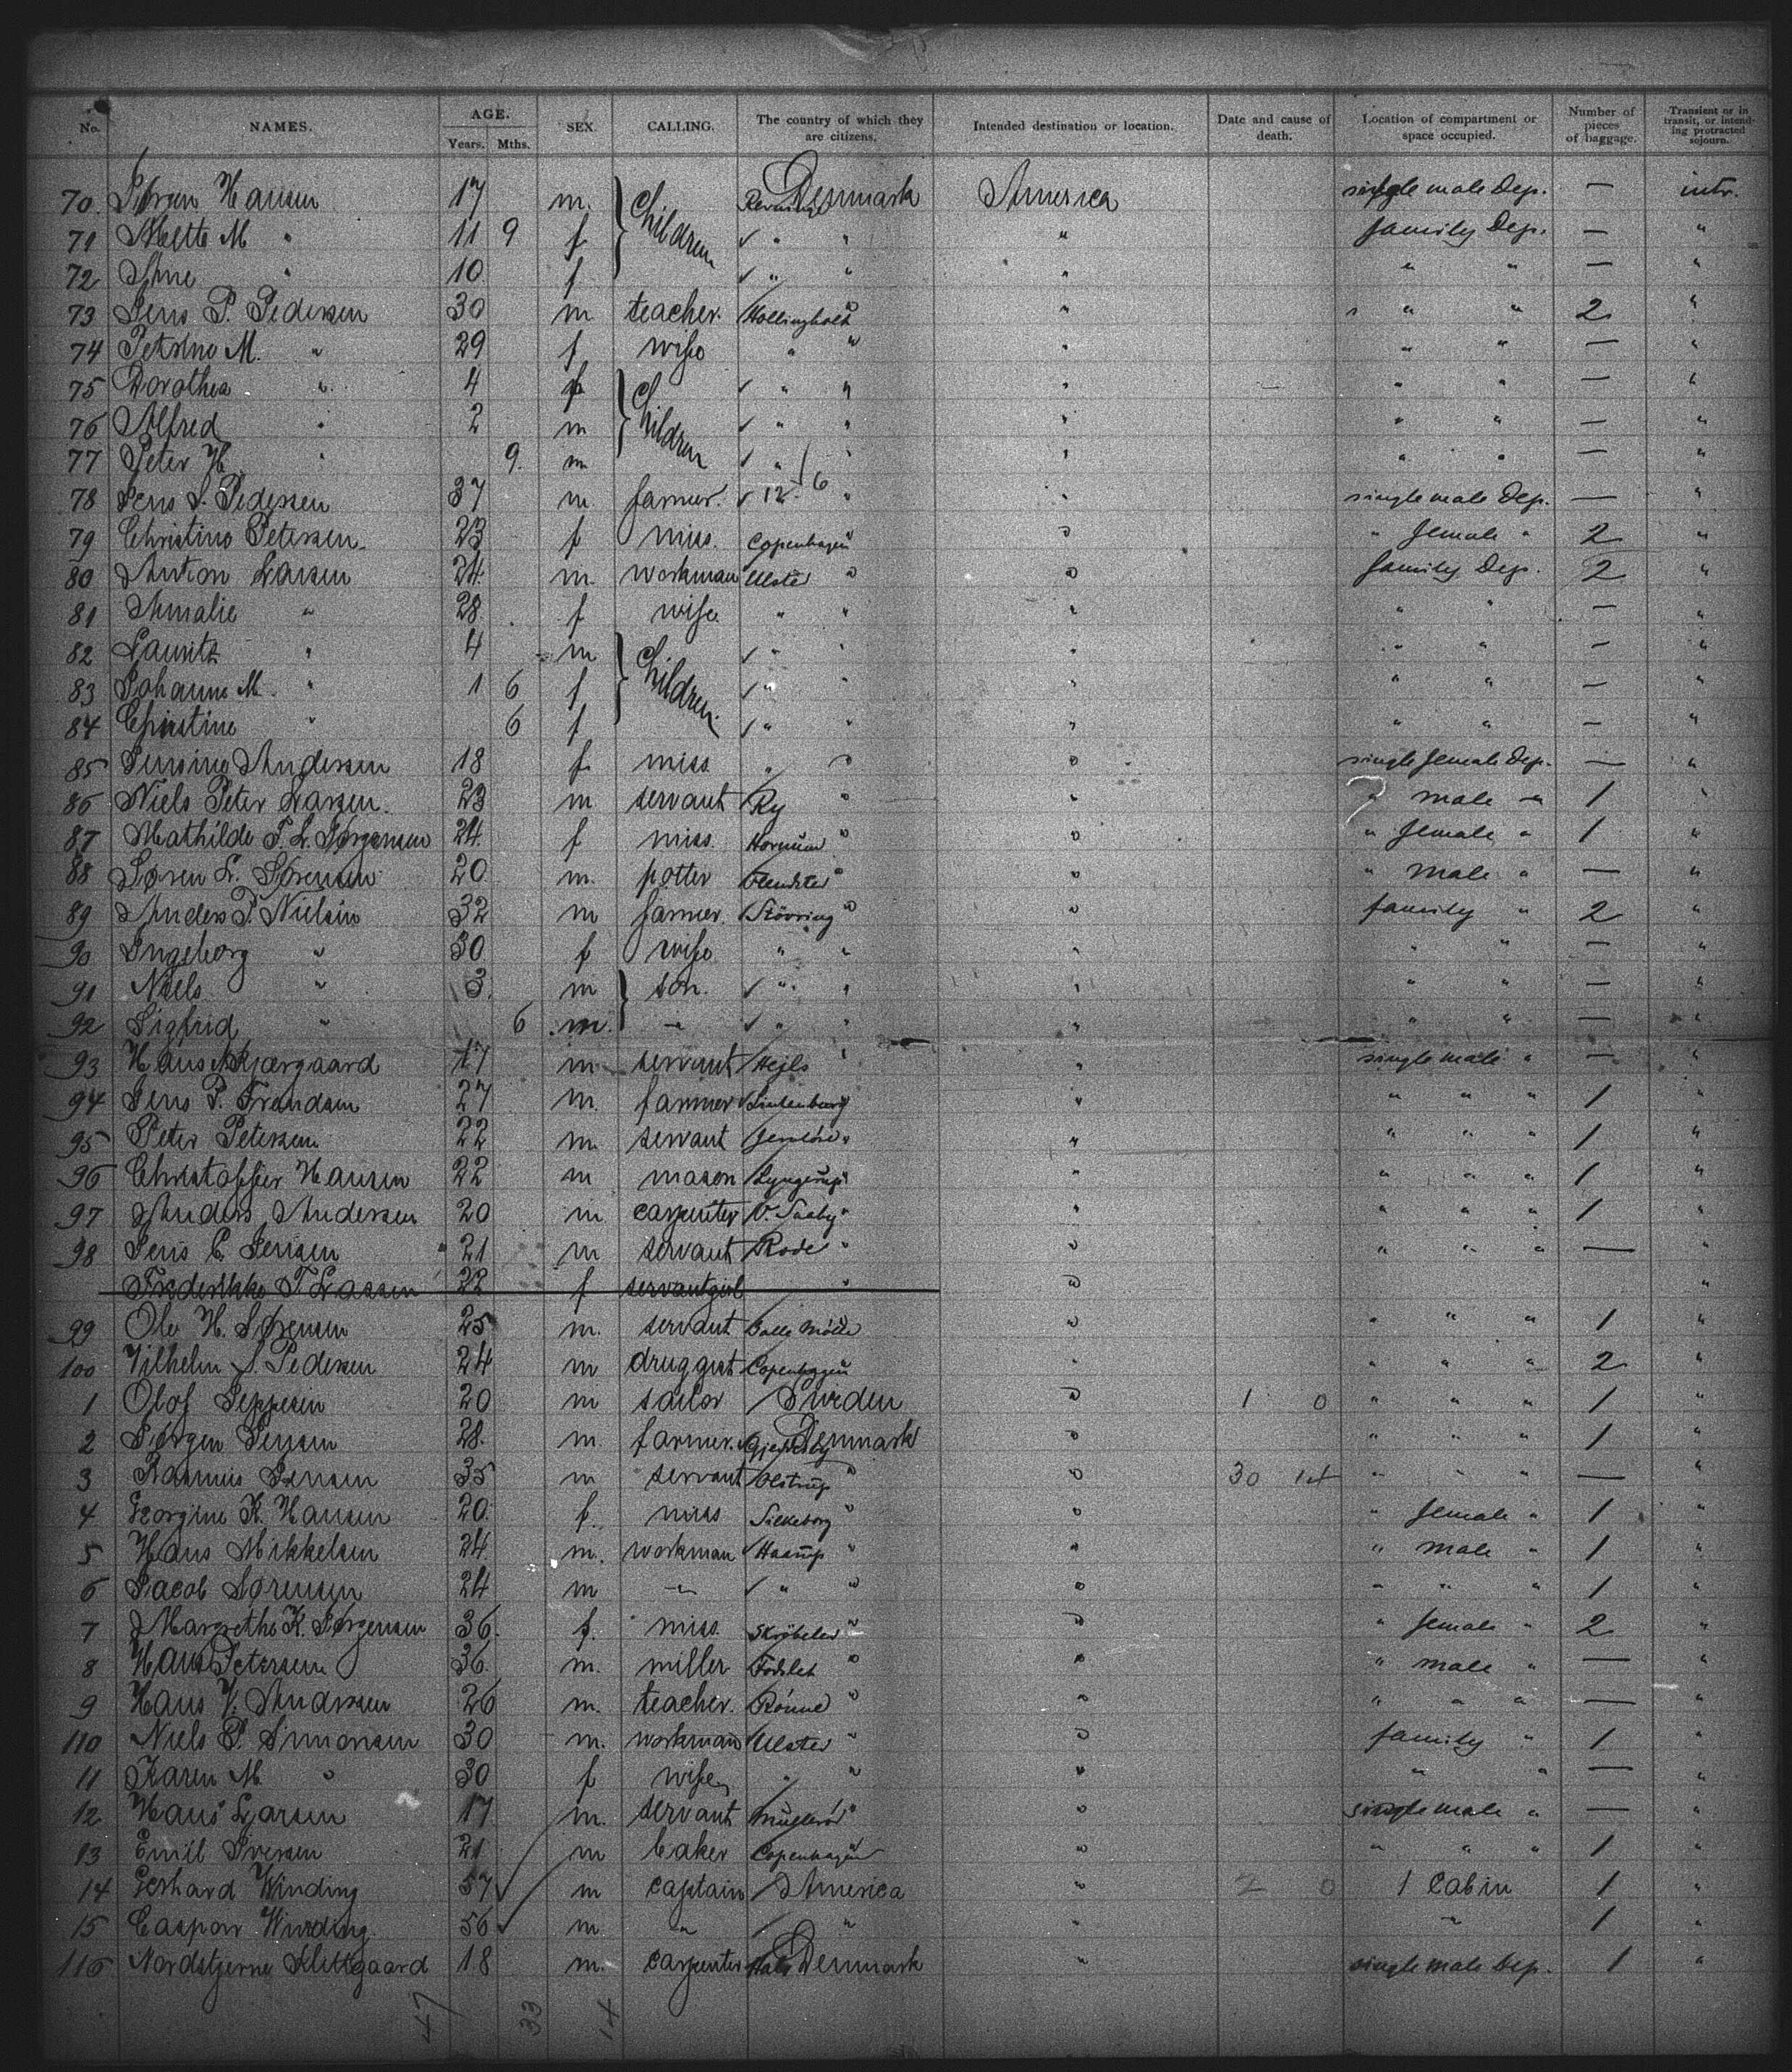 No. NAMES. AGE. Years. Mths. SEX. CALLING. The country of which they are citizens. Intended destination or location. Date and cause of death. Location of compartment or space occupied. Number of pieces of baggage. Transient or in transit, or intending protracted sojourn.
70. Hansen 17 m. Children Denmark America single male Dep. — intr.
71 Mette M " 11 9 f " " " family Dep. — "
72 Ane " 10 f " " " " " — "
73 Jens P. Pedersen 30 m teacher. Hollingholt " " " " 2 "
74 Petrine M. " 29 f wife " " " " " — "
75 Dorothea " 4 f Children " " " " " — "
76 Alfred " 2 m " " " " " — "
77 Peter H. " 9. m " " " " " — "
78 Jens S. Pedersen 37 m farmer. " " single male Dep. — "
79 Christine Petersen 23 f miss. Copenhagen " " " female " 2 "
80 Anton Larsen 24 m. workman Ulsted " " family Dep. 2 "
81 Amalie " 28 f wife " " " " " — "
82 Lauritz " 4 m Children " " " " " — "
83 Johanne M. " 1 6 f " " " " " — "
84 Christine " 6 f " " " " " — "
85 Jensine Andersen 18 f miss " " " single female Dep. — "
86 Niels Peter Larsen 23 m servant Ry " " " male " 1 "
87 Mathilde P. L. Jørgensen 24 f miss. Hornum " " " female " 1 "
88 Søren L. Sørensen 20 m. potter " " " male " — "
89 Anders P. Nielsen 32 m farmer. Stövring " " family " 2 "
90 Ingeborg " 30 f wife " " " " " — "
91 Niels " 3 m son. " " " " " — "
92 Sigfrid " 6 m. " " " " " " — "
93 Hans Kjærgaard 17 m servant Hejls " " single male " — "
94 Jens P. Frandsen 27 m. farmer " " " " " 1 "
95 Peter Petersen 22 m. servant " " " " " 1 "
96 Christoffer Hansen 22 m mason Lyngerup " " " " " 1 "
97 Anders Andersen 20 m carpenter V. Saaby " " " " " 1 "
98 Jens C. Jensen 21 m servant Rode " " " " " — "
Frederikke T. Lassen 22 f servantgirl " " "
99 Ole H. Sørensen 25 m. servant Balle Mölle " " " " 1 "
100 Vilhelm S. Pedersen 24 m druggist Copenhagen " " " " " 2 "
1 Olof Jeppesen 20 m sailor Sweden " 1 0 " " " 1 "
2 Jørgen Jensen 28 m. farmer. Denmark " " " " 1 "
3 Rasmus Jensen 35 m servant Olstrup " " 30 14 " " " — "
4 Georgine K. Hansen 20 f. miss Silkeborg " " " female " 1 "
5 Hans Mikkelsen 24 m. workman Haarup " " " male " 1 "
6 Jacob Sørensen 24 m " " " " " " " 1 "
7 Margrethe K. Jørgensen 36. f. miss. Skröbelev " " " female " 2 "
8 Hans Petersen 36. m. miller Fodslet " " " male " — "
9 Hans V. Andersen 26 m. teacher. Rönne " " " " " — "
110 Niels P. Simonsen 30 m. workman Ulsted " " family " 1 "
11 Karen M. " 30 f wife " " " " " — "
12 Hans Larsen 17 m. servant " " single male " — "
13 Emil Iversen 21 m baker Copenhagen " " " " " 1 "
14 Gerhard Winding 57 m captain America " 2 0 1 Cabin 1 "
15 Caspar Winding 56 m. " " " " 1 "
116 Nordstjerne Klittgaard 18 m. carpenter Hals Denmark " single male Dep. 1 "
47 33 14